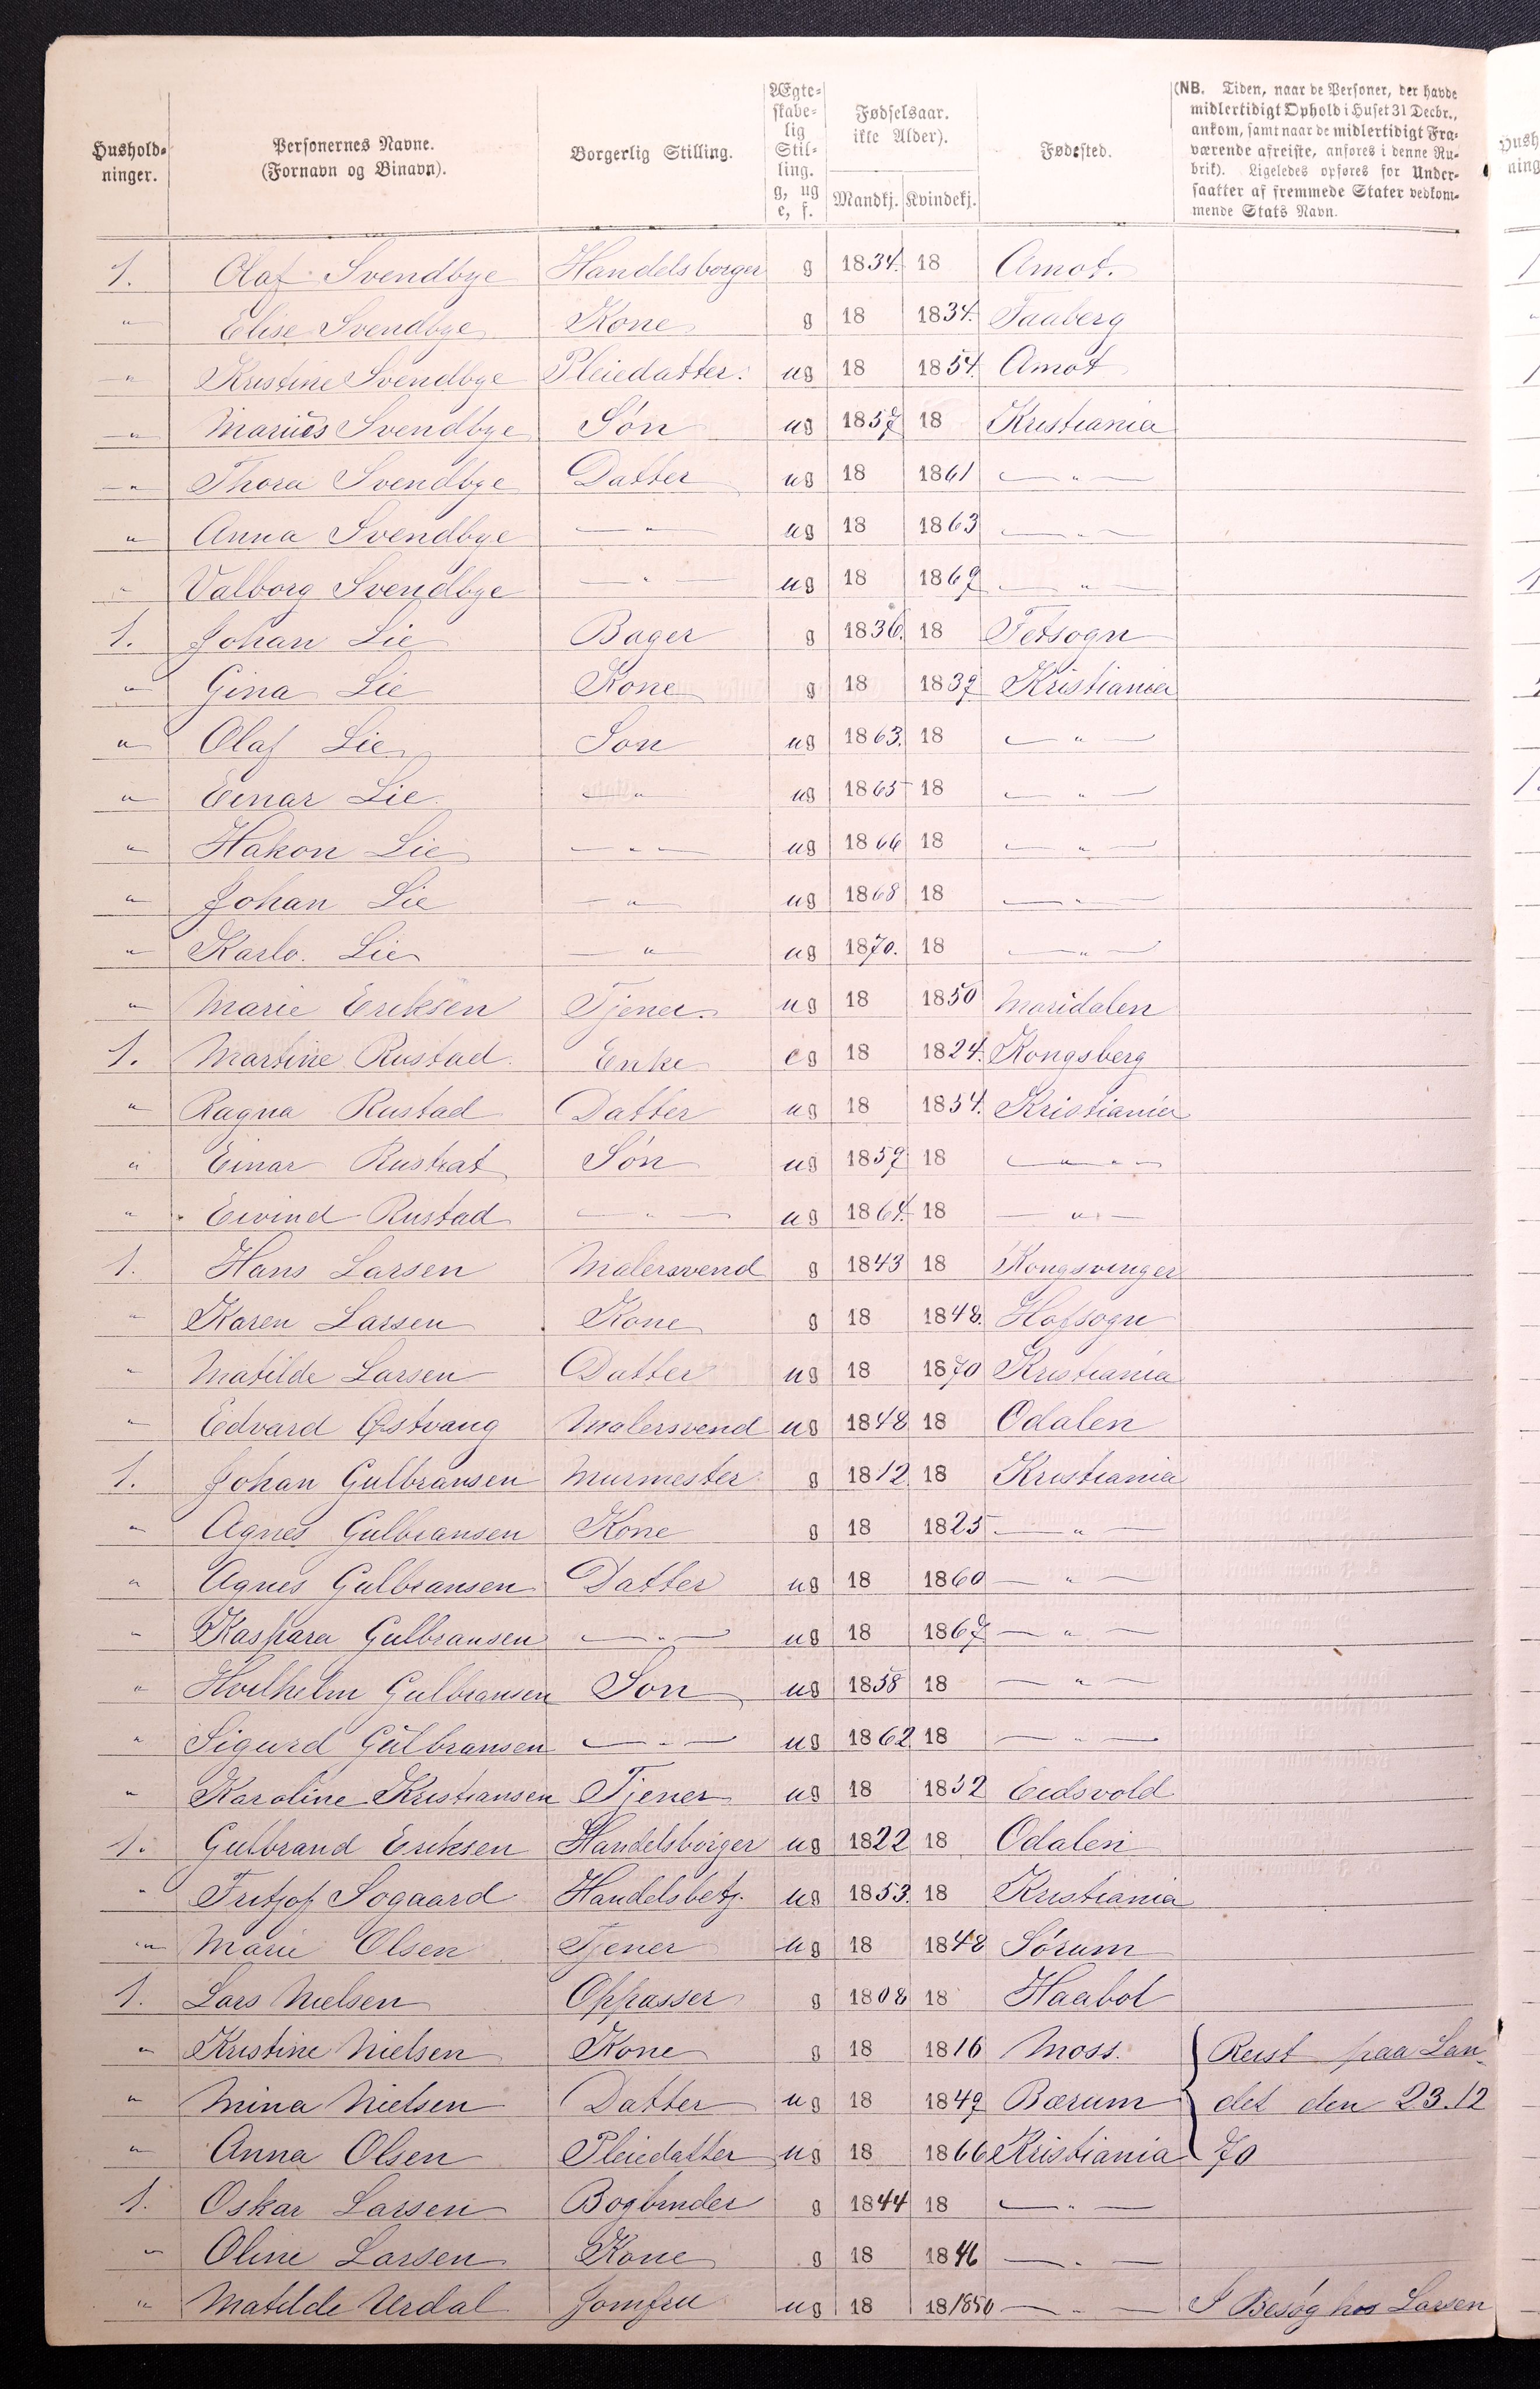 Hushold-
ninger.
Personernes Navne.
(Fornavn og Binavn).
Borgerlig Stilling.
Ægte-
skabe-
lig
Stil-
ling.
g, ug
e, f.
Fødselsaar.
ikke Alder).
Mandkj. Kvindekj.
Fødested.
(NB. Tiden, naar de Personer, der havde
midlertidigt Ophold i Huset 31 Decbr.,
ankom, samt naar de midlertidigt Fra-
værende afreiste, anføres i denne Ru-
brik). Ligeledes opføres for Under-
saatter af fremmede Stater vedkom-
mende Stats Navn.
1. Olaf Svendbye Handelsborger g 1834. 18 Amot.
" Elise Svendbye Kone g 18 1834. Faaberg
" Kristine Svendbye Pleiedatter. ug 18 1854. Amot
" Marius Svendbye Søn ug 1857 18 Kristiania
" Thora Svendbye Datter ug 18 1861 — " —
" Anna Svendbye — " ug 18 1863 — " —
" Valborg Svendbye — " — ug 18 1869 — " —
1. Johan Lie Bager g 1836. 18 Fetsogn
" Gina Lie Kone g 18 1839 Kristiania
" Olaf Lie Son ug 1863. 18 — " —
" Einar Lie — " ug 1865 18 — " —
" Hakon Lie — " — ug 1866 18 — " —
" Johan Lie — " ug 1868 18 — " —
" Karlo. Lie — " ug 1870. 18 — " —
" Marie Eriksen Tjener. ug 18 1850 Maridalen
1. Martine Rustad. Enke eg 18 1824. Kongsberg
" Ragna Rustad Datter ug 18 1854. Kristiania
" Einar Rustat Søn ug 1859 18 — " —
" Eivind Rustad — " — ug 1864. 18 — " —
1. Hans Larsen Malersvend g 1843 18 Kongsvinger
" Karen Larsen Kone g 18 1848. Hofsogn
" Matilde Larsen Datter ug 18 1870 Kristiania
" Edvard Østvang Malersvend ug 1848 18 Odalen
1. Johan Gulbransen Murmester g 1812 18 Kristiania
" Agnes Gulbransen Kone g 18 1825 — " —
" Agnes Gulbransen Datter ug 18 1860 — " —
" Kaspara Gulbransen — " — ug 18 1867 — " —
" Hvilhelm Gulbransen Son ug 1858 18 — " —
" Sigurd Gulbransen — " — ug 1862 18 — " —
" Karoline Kristiansen Tjener ug 18 1832 Eidsvold
1. Gulbrand Eriksen Handelsborger ug 1822 18 Odalen
" Fritjof Sogaard Handelsbetj. ug 1853. 18 Kristiania
" Marie Olsen Tjener ug 18 1848 Sørum
1. Lars Nielsen Oppasser g 1808 18 Haabol
" Kristine Nielsen Kone g 18 1816 Moss. Reist paa Lan-
" Mina Nielsen Datter ug 18 1849 Bærum det den 23.12
" Anna Olsen Pleiedatter ug 18 1866 Kristiania 70
1. Oskar Larsen Bogbinder g 1844 18 — " —
" Oline Larsen Kone g 18 1846 — " —
" Matilde Urdal Jomfru ug 18 18/1850 — " — I Besøg hos Larsen